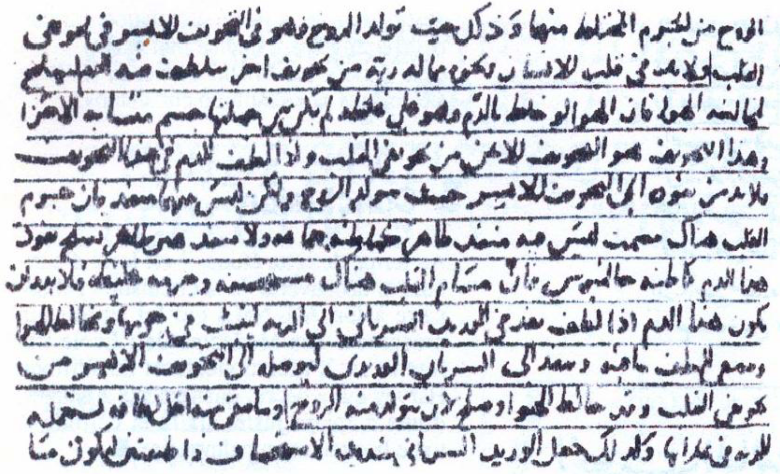 الروح من الجرم المختلط منهما وذلك حيث تولد الروح وهو في التجويف الايسر من تجويفي
القلب ولابد في قلب الانسان ونحوه مما له رية من تجويف اخر يتلطف فيه الدم ليصلح
لمخالطة الهوا فان الهوا لو خلط بالدم وهو على غلظه لم يكن من جملتها جسم متشابه الاجزا
وهذا التجويف هو التجويف الايمن من تجويفي القلب واذا لطف الدم في هذا التجويف
فلابد من نفوذه الى التجويف الايسر حيث مولد الروح ولكن ليس بينهما منفذ فان جرم
القلب هناك مصمت ليس فيه منفذ ظاهر كما ظنه جماعه ولا منفذ غير ظاهر يصلح لنفوذ
هذا الدم كما ظنه جالينوس فان مسام القلب هناك مستحصفه وجرمه غليظ فلابد وان
يكون هذا الدم اذا لطف نفذ في الوريد الشرياني الى الريه لينبث في جرمها ويخالط الهوا
ويصفى الطف ما فيه وينفذ الى الشريان الوريدي ليوصله الى التجويف الايسر من
تجويفي القلب وقد خالط الهوا وصلح لان يتولد منه الروح وما يبقى منه اقل لطافه تستعمله
الريه في غذايها ولذلك جعل الوريد الشرياني شديد الاستحصاف ذا طبقتين ليكون ما